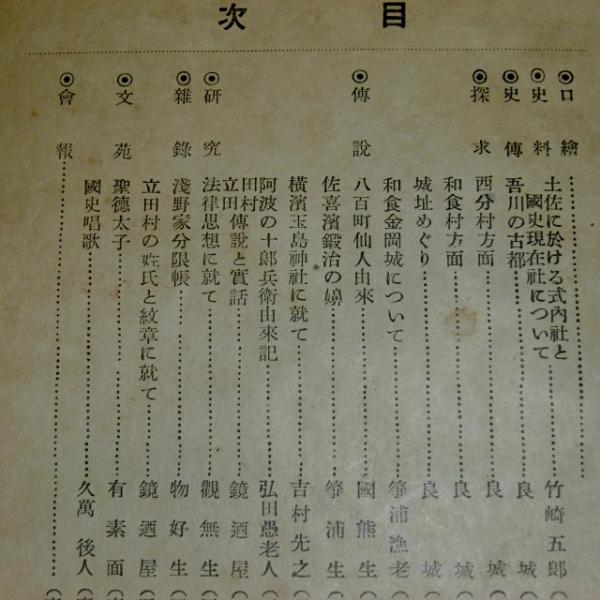 目次
◉口繪
◉史料 土佐に於ける式內社と
國史現在社について 竹崎五郎
◉史傳 吾川の古都 良城
◉探求 西分村方面 良城
和食村方面 良城
城址めぐり 良城
和食金岡城について 箏浦漁老
◉傳說 八百町仙人由來 國熊生
佐喜濱鍛治の嫲 箏浦生
橫濱玉島神社に就て 吉村先之
阿波の十郎兵衛由來記 弘田愚老人
田村
立田傳說と實話 鏡迺屋
◉硏究 法律思想に就て 觀無生
◉雜錄 淺野家分限帳 物好生
立田村の姓氏と紋章に就て 鏡迺屋
◉文苑 聖德太子 有素面
國史唱歌 久萬後人
◉會報